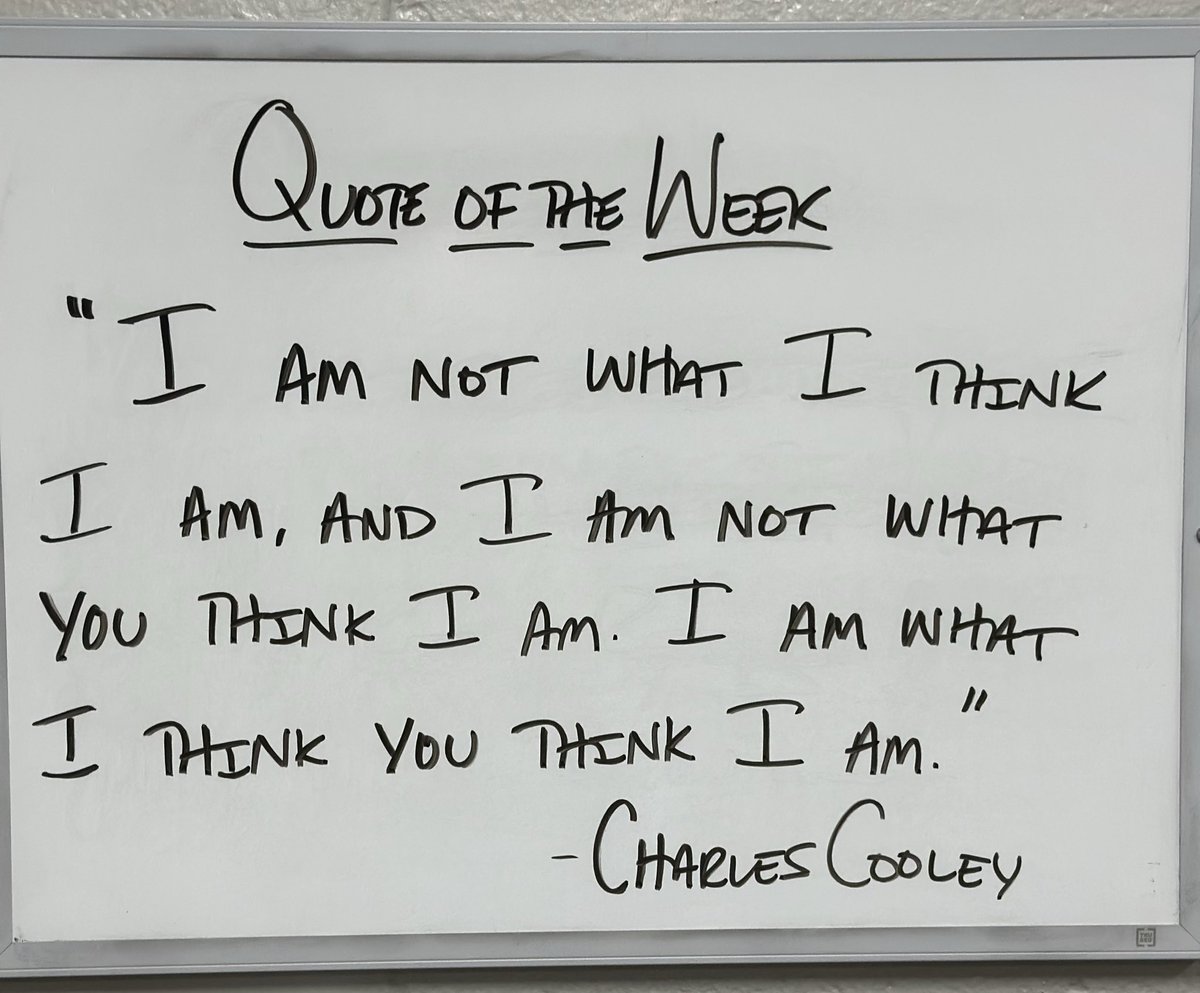 QUOTE OF THE WEEK
"I AM NOT WHAT I THINK
I AM, AND I AM NOT WHAT
YOU THINK I AM. I AM WHAT
I THINK YOU THINK I AM."
- CHARLES COOLEY